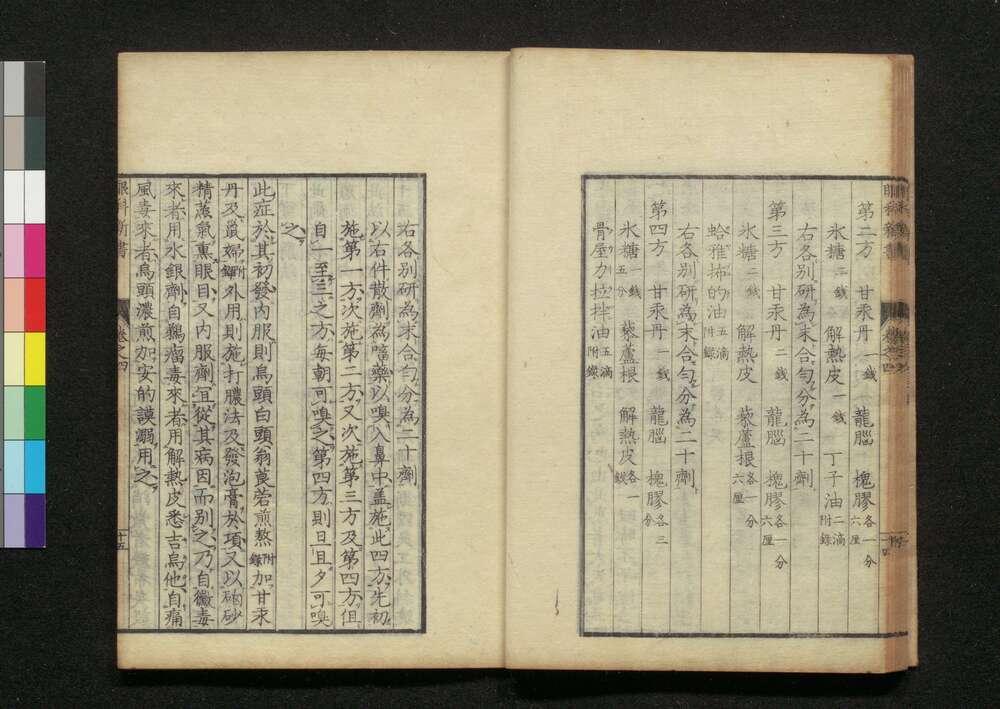 第二方 甘汞丹一錢 龍腦 槐膠各一分六厘
氷糖二錢 解熱皮一錢 丁子油二滴附錄
右各別研為末合勻分為二十劑
第三方 甘汞丹二錢 龍腦 槐膠各一分六厘
氷糖二錢 解熱皮 藜蘆根各一分六厘
蛤雅拂的油五滴附錄
右各別研為末合勻分為二十劑
第四方 甘汞丹一錢 龍腦 槐膠各三分
氷糖一錢五分 藜蘆根 解熱皮各一錢
骨屋力拉拌油五滴附錄
右各別研為末合勻分為二十劑
以右件散劑為嚏藥以嗅入鼻中蓋施此四方先初
施第一方次施第二方又次施第三方及第四方但
自一至三之方每朝可嗅之第四方則旦且夕可嗅
之
此症於其初發內服則烏頭白頭翁莨菪煎熬附錄加甘汞
丹及鼠婦附錄外用則施打膿法及發泡膏於項又以硇砂
精蒸氣熏眼目又內服劑宜從其病因而別之乃自黴毒
來者用水銀劑自鶏瘤毒來者用解熱皮悉吉烏他自痛
風毒來者烏頭濃煎加安的謨溺用之
眼科新書 卷之四 十五